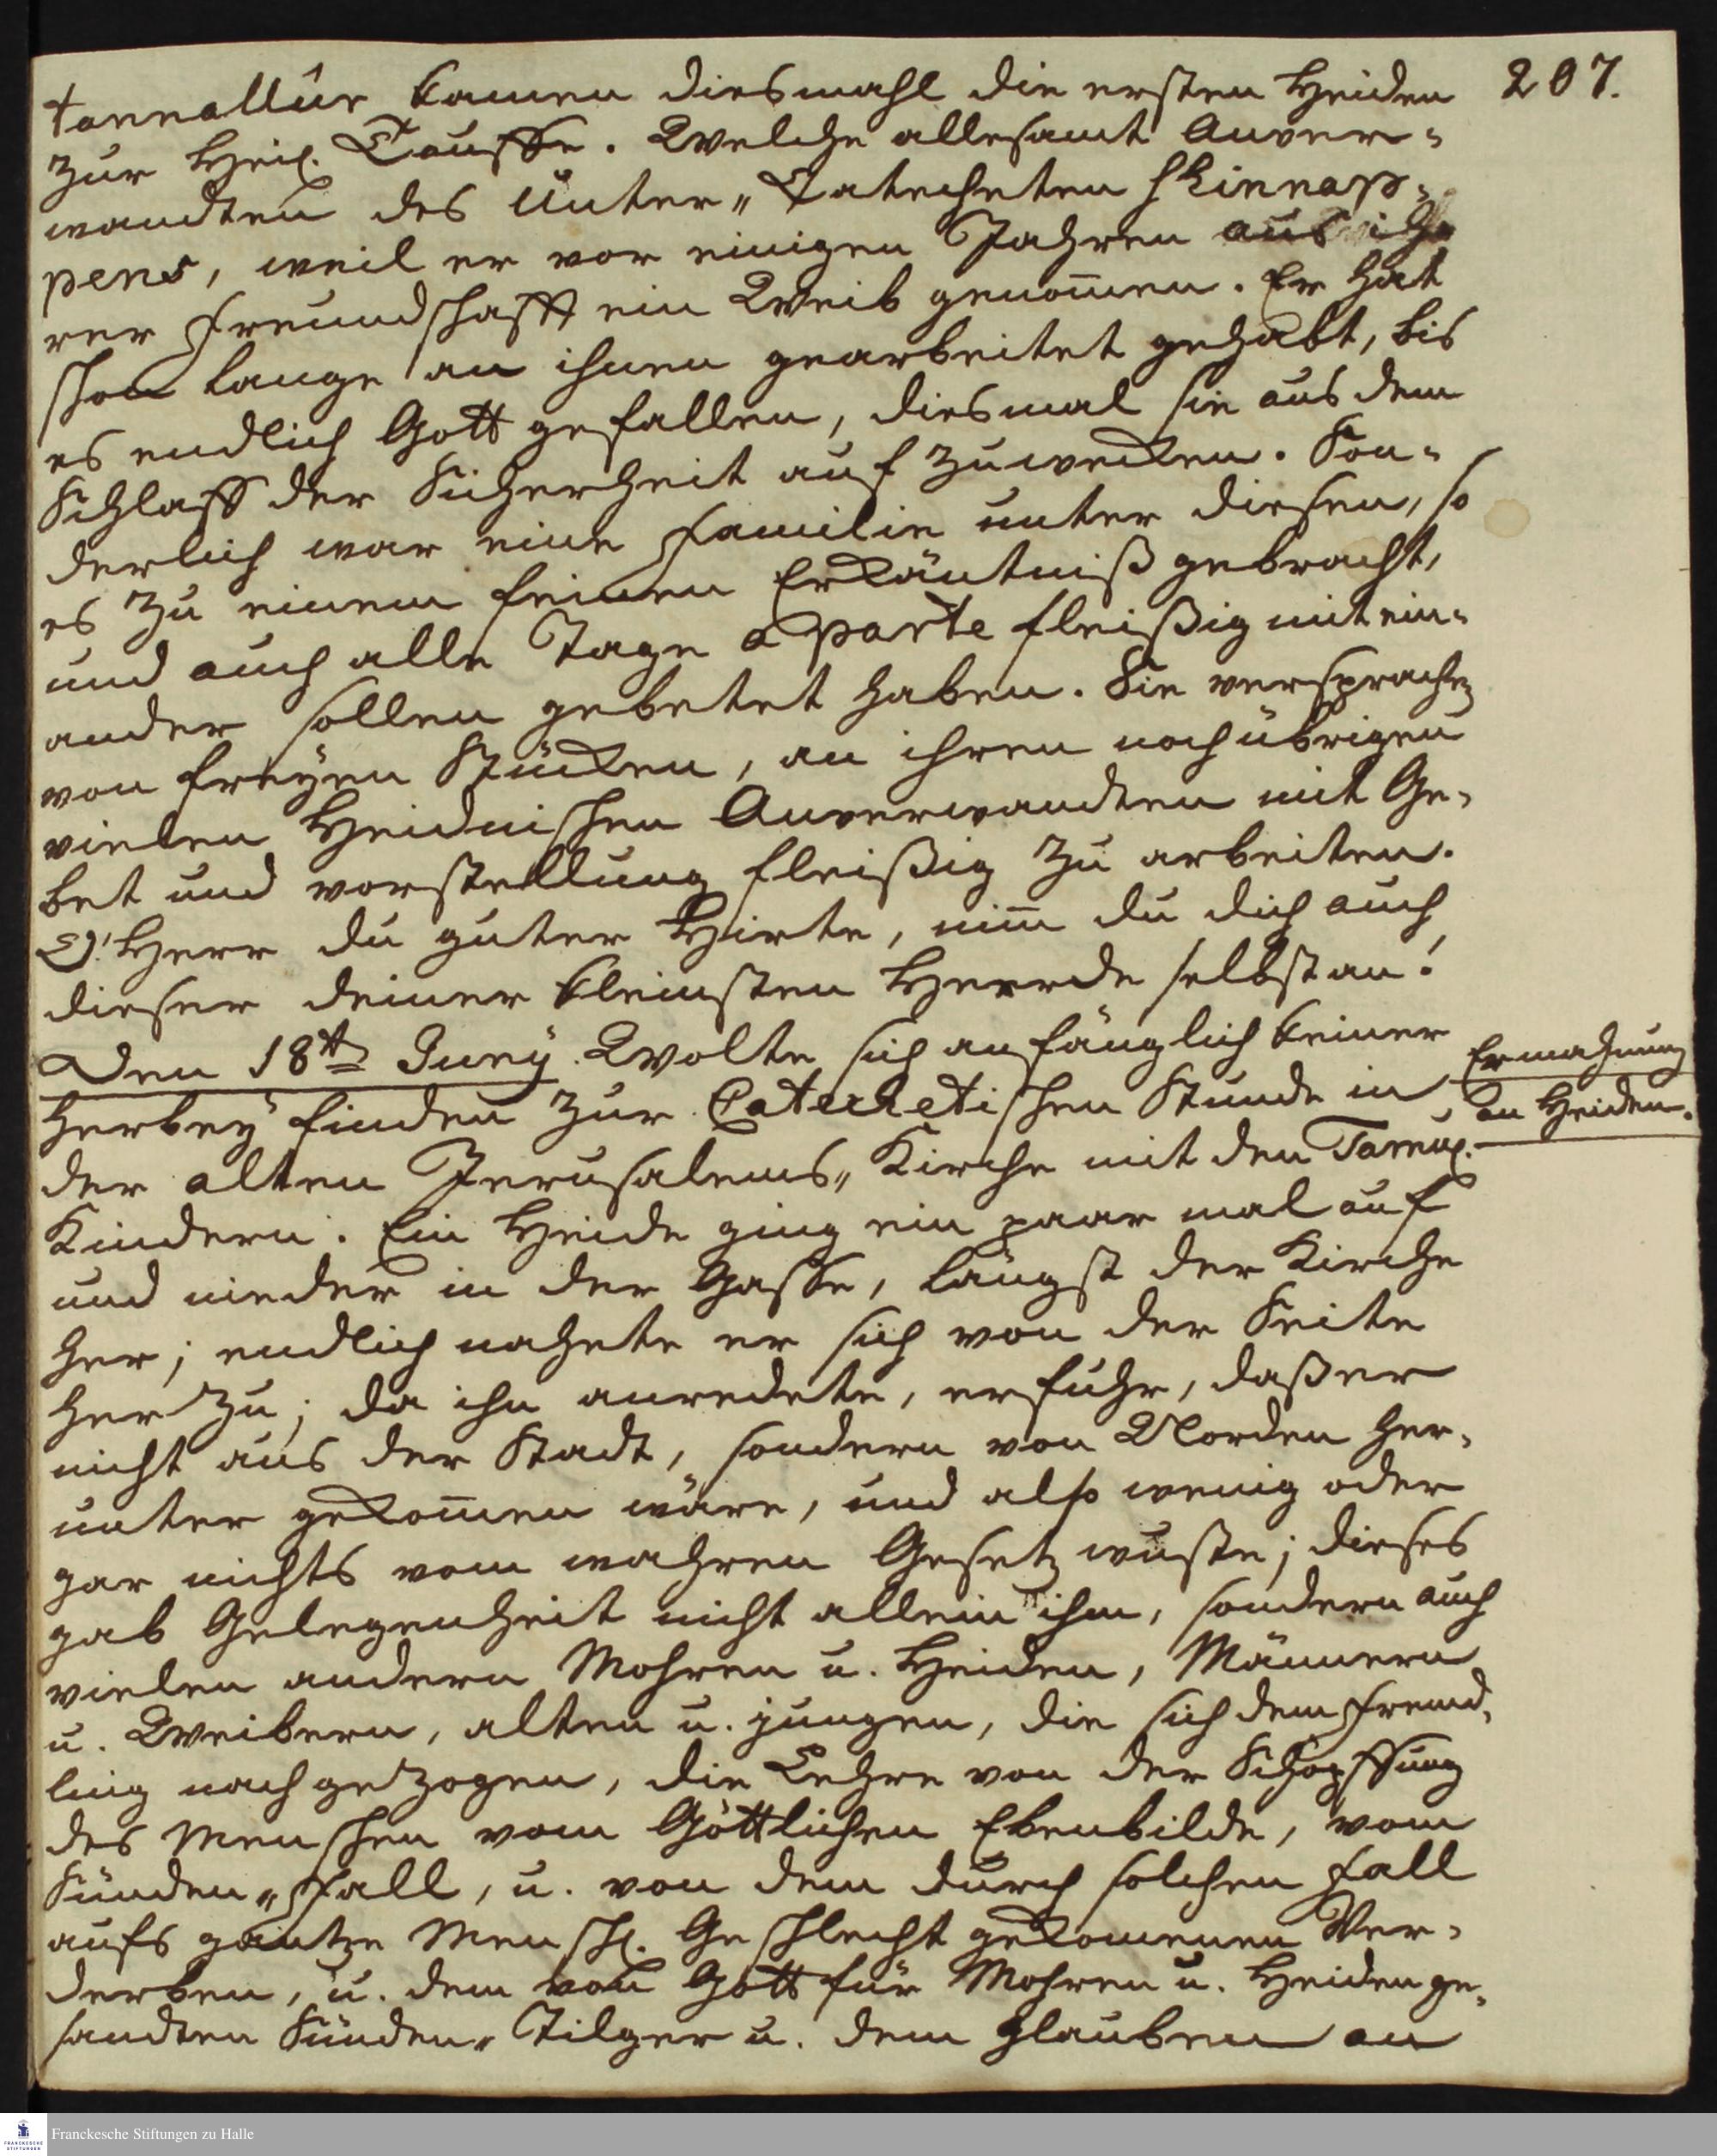 207.
tannallûr kamen diesmahl die ersten Heiden
zur Heil. Tauffe. Welche allesamt Anver-
wandten des Unter„Catecheten Schinnap-
pens, weil er vor einigen Jahren aus ih-
rer Freundschafft ein Weib genom̄en. Er hat
schon lange an ihnen gearbeitet gehabt, bis
es endlich Gott gefallen, diesmal sie aus dem
Schlaff der Sicherheit auf zuwecken. Son-
derlich war eine Familie unter diesen, so
es zu einem feinen Erkäntniß gebracht,
und auch alle Tage a parte fleißig mit ein-
ander sollen gebetet haben. Sie versprachen
von freyen Stücken, an ihren noch übrigen
vielen Heidnischen Anverwandten mit Ge-
bet und vorstellung fleißig zu arbeiten.
O! Herr du guter Hirte, nim̄ du dich auch
dieser deiner kleinsten Heerde selbst an!
Den 18ten Juny. Wolte sich anfänglich keiner
herbey finden zur Catechetischen Stunde in
der alten Jerusalems„Kirche mit den Tamul.
Kindern. Ein Heide ging ein paar mal auf
und nieder in der Gasse, längst der Kirche
her; endlich nahete er sich von der Seite
her zu; da ihn anredete, erfuhr, daß er
nicht aus der Stadt, sondern von Norden her-
unter gekom̄en wäre, und also wenig oder
gar nichts vom wahren Gesetz wuste; dieses
gab Gelegenheit nicht allein ihm, sondern auch
vielen andern Mohren u. Heiden, Männern
u. Weibern, alten u. jungen, die sich dem Fremd-
ling nach gezogen, die Lehre von der Schöpffung
des Menschen vom Göttlichen Ebenbilde, vom
Sünden„Fall, u. von dem durch solchen Fall
aufs gantze Menschl. Geschlecht gekomenen Ver-
derben, u. dem von Gott für Mohren u. Heiden ge-
sandten Sünden„Tilger u. dem Glauben an
Ermahnung
an Heiden.
Franckesche Stiftungen zu Halle
FRANCKESCHE
STIFTUNGEN